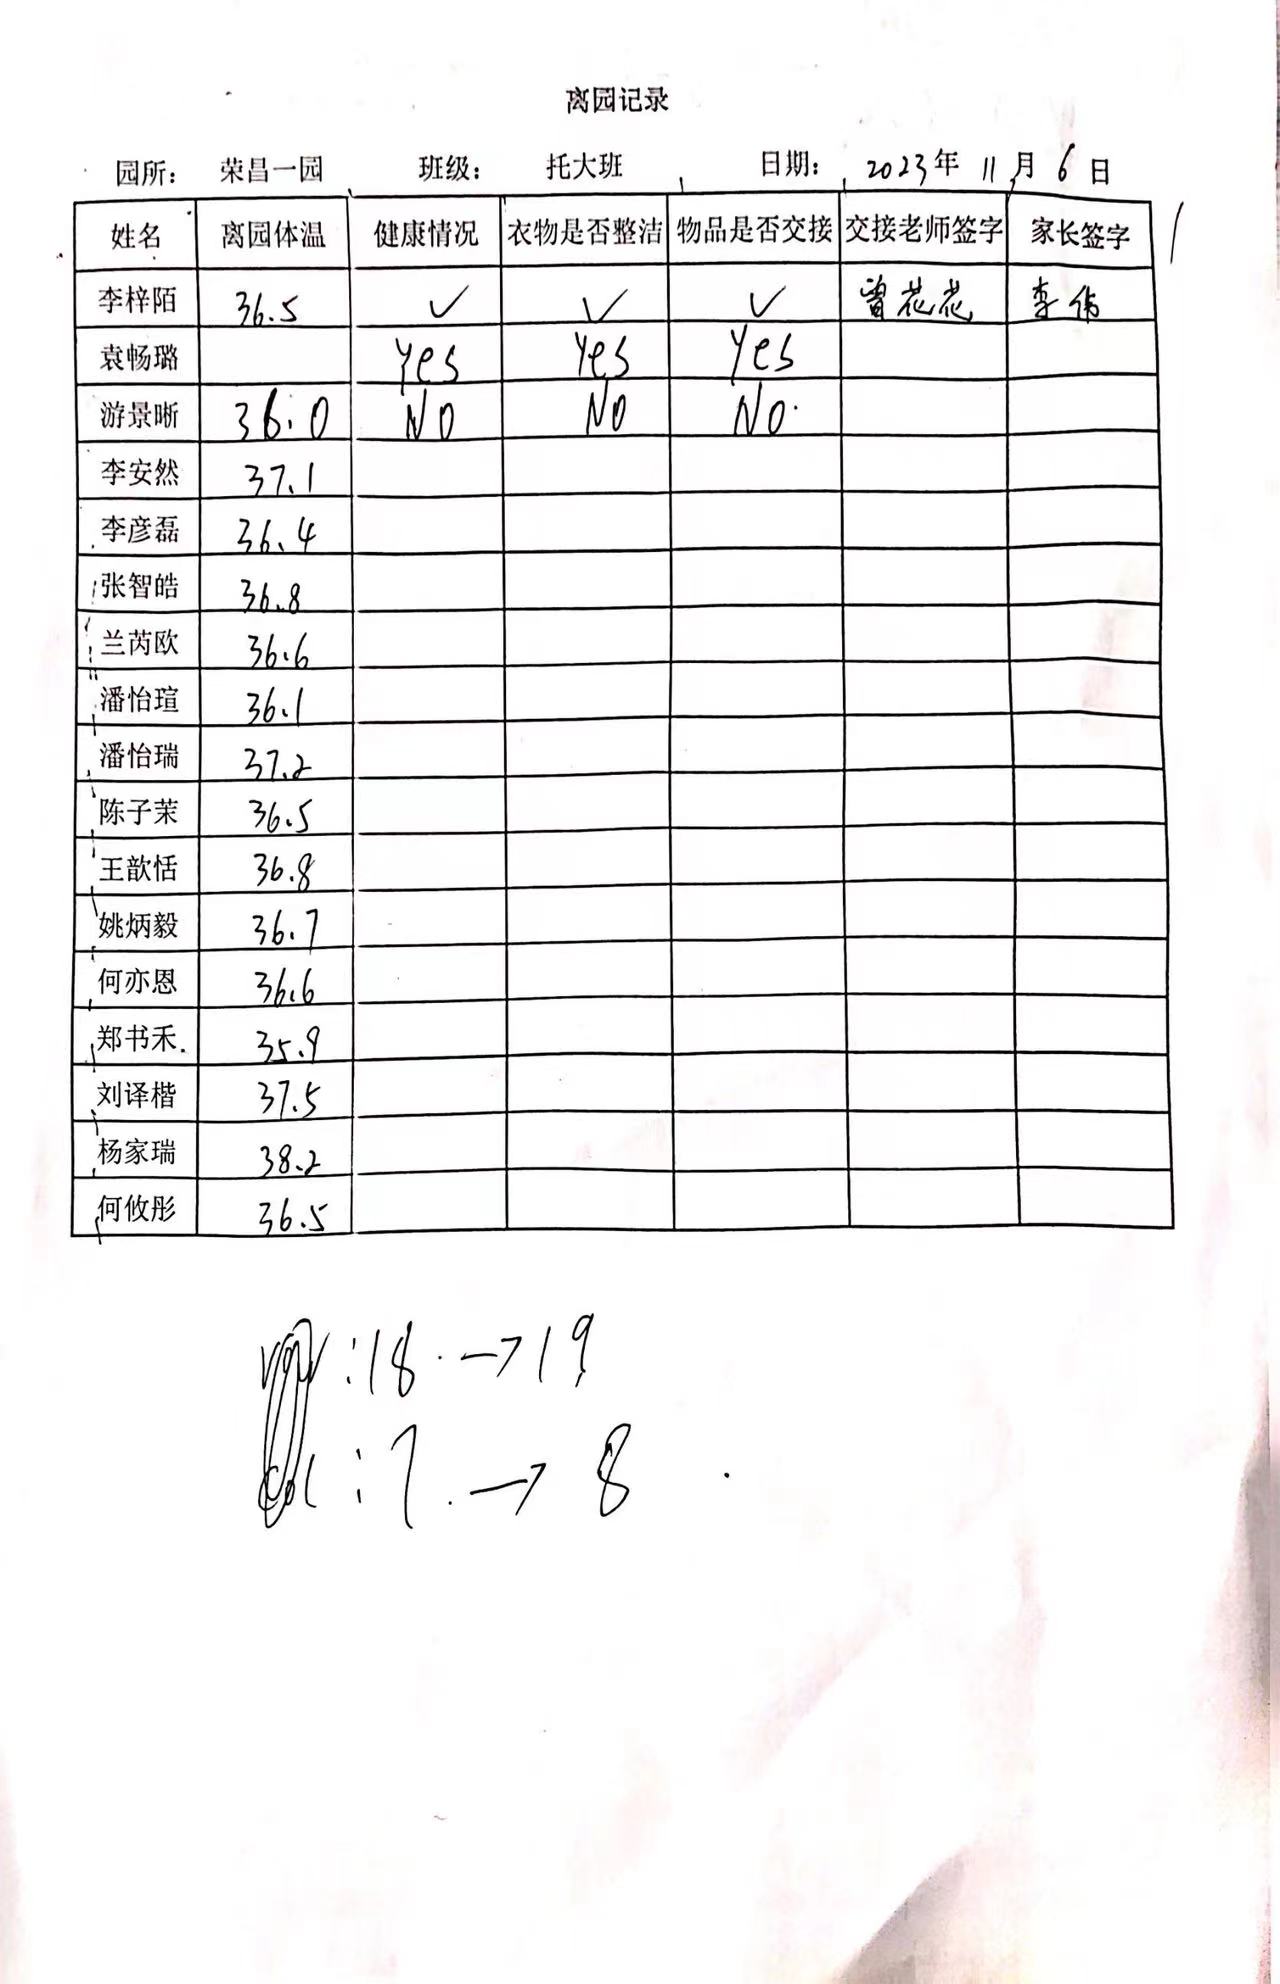 离园记录
园所： 荣昌一园 班级： 托大班 日期： 2023年 11月 6日
姓名 离园体温 健康情况 衣物是否整洁 物品是否交接 交接老师签字 家长签字
李梓陌 36.5 ✓ ✓ ✓ 曾花花 李伟
袁畅璐 Yes Yes Yes
游景晰 36.0 NO NO NO.
李安然 37.1
李彦磊 36.4
张智皓 36.8
兰芮欧 36.6
潘怡瑄 36.1
潘怡瑞 37.2
陈子茉 36.5
王歆恬 36.8
姚炳毅 36.7
何亦恩 36.6
郑书禾 35.9
刘译楷 37.5
杨家瑞 38.2
何攸彤 36.5
:18 → 19
: 7 → 8